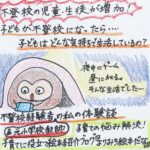 不登校の児童・生徒が増加!
子どもが不登校になったら‥‥
子どもはどんな気持ちで生活しているの?
夜中にゲーム
昼に知る。
そんな生活でした…
不登校経験者の私の体験談
(元小学校教師)
子育ての悩み解決!
子育てに役立つ絵本紹介ブログ